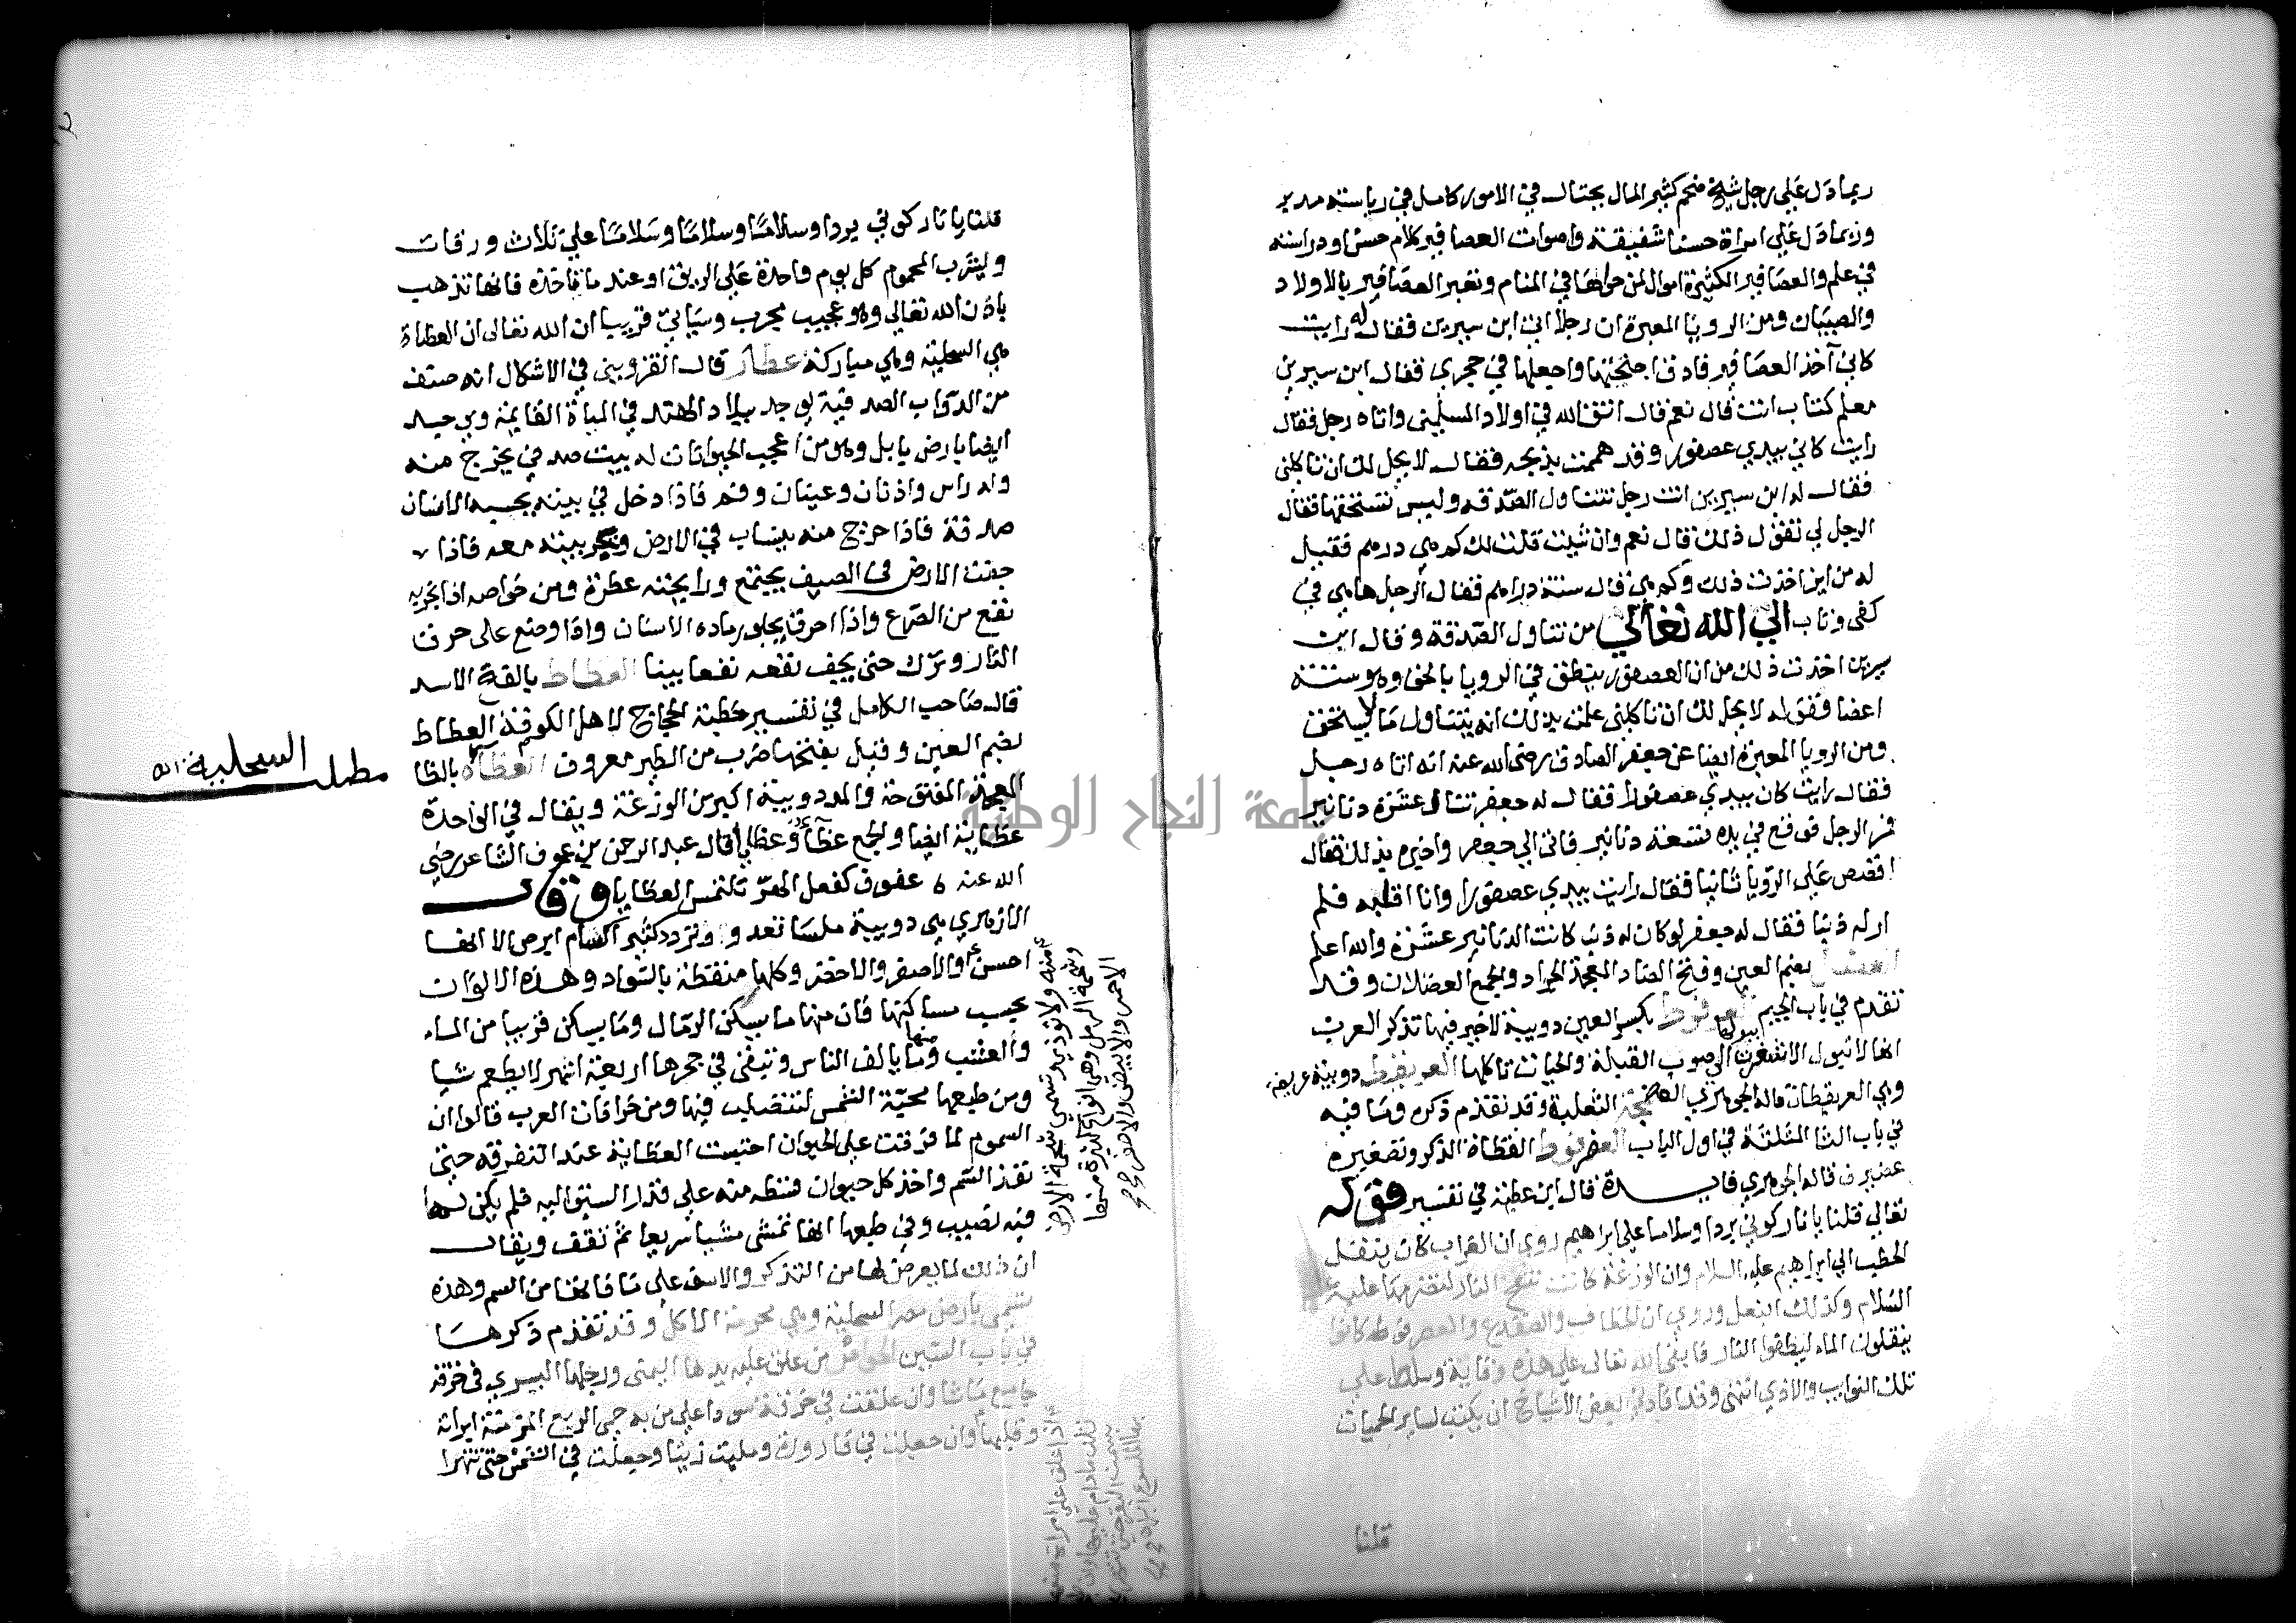 ربما دل علي رجل شيخ ضخم كثير المال يحتال في الامور كامل في رياسته مدبر
وربما دل علي امراة حسنا شفيقة واصوات العصافير كلام حسن او دراسة
في علم والعصافير الكثيرة اموال لمن حواها في المنام وتعبر العصافير بالاولاد
والصبيان ومن الرويا المعبرة ان رجلا اتى ابن سيرين فقال له رايت
كاني آخذ العصافير فادق اجنحتها واجعلها في حجري فقال ابن سيرين
معلم كتاب انت قال نعم قال اتق الله في اولاد المسلمين واتاه رجل فقال
رايت كاني بيدي عصفور وقد هممت بذبحه فقال لا يحل لك ان تاكلني
فقال له ابن سيرين انت رجل تتناول الصدقه وليس تستحقها فقال
الرجل لي تقول ذلك قال نعم وان شيت قلت لك كم هي درهم فقيل
له من اين اخذت ذلك وكم هي قال ستة دراهم فقال الرجل هاهي في
كفي وتاب الي الله تعالي من تناول الصدقة وقال ابن
سيرين اخذت ذلك من ان العصفور ينطق في الرويا بالحق وهو ستة
اعضا وقوله لا يحل لك ان تاكلني علمت بذلك انه يتناول ما لا يستحق
ومن الرويا المعبرة ايضا عن جعفر الصادق رضى الله عنه انه اتاه رجل
فقال رايت كان بيدي عصفورا فقال له جعفر تنال عشرة دنانير
فمر الرجل فوقع في يده تسعة دنانير فاتى الي جعفر واخبره بذلك فقال
اقصص علي الرويا ثانيا فقال رايت بيدي عصفورا وانا اقلبه فلم
ار له ذنبا فقال له جعفر لو كان له ذنب كانت الدنانير عشرة والله اعلم
العضل بضم العين وفتح الضاد المعجمة الجراد والجمع العضلان وقد
تقدم في باب الجيم العرفوط بكسر العين دويبة لا خير فيها تذكر العرب
انها لا تبول الا شغرت ببولها الي صوب القبلة والحيات تاكلها العريقطة دويبة عريضة
وهي العريقطان قاله الجوهري العضمجة الثعلبة وقد تقدم ذكره وما فيه
في باب الثا المثلثة في اول الباب العضرفوط العظاة الذكر وتصغيره
عضيرف قاله الجوهري فايدة قال ابن عطية في تفسير قوله
تعالي قلنا يا نار كوني بردا وسلاما علي ابراهيم روي ان الغراب كان ينقل
الحطب الي ابراهيم عليه السلام وان الوزغة كانت تنفخ النار لتضرمها عليه
السلام وكذلك البغل وروي ان الخطاف والضفدع والعضرفوط كانوا
ينقلون الماء ليطفوا النار فابقى الله تعالى علي هذه وقاية وسلط علي
تلك النوايب والاذي انتهى وقد افادني بعض الاشياخ ان يكتب لساير الحميات
قلنا
قلنا يا نار كوني بردا وسلاما وسلاما وسلاما علي ثلاث ورقات
ويشرب المحموم كل يوم واحدة علي الريق او عند ما تاخذه فانها تذهب
باذن الله تعالي وهو عجيب مجرب وسياتي قريبا ان الله تعالى ان العظاة
هي السحلية وهي مباركة عطار قال القزويني في الاشكال انه صنف
من الدواب الصدفية يوجد ببلاد الهند في المياة القايمة ويوجد
ايضا بارض بابل وهو من اعجب الحيوانات له بيت صدفي يخرج منه
وله راس واذنان وعينان وفم فاذا دخل في بيته يحسبه الانسان
صدفة فاذا خرج منه ينساب في الارض ويجر بيته معه فاذا
جفت الارض في الصيف يجتمع ورايحته عطرة ومن خواصه اذا بخر به
نفع من الصرع واذا احرق يجلو رماده الاسنان واذا وضع على حرق
النار وترك حتى يجف نفعه نفعا بينا العطاط بالفتح الاسد
قاله صاحب الكامل في تفسير خطبة الحجاج لاهل الكوفة العطاط
بضم العين وقيل بفتحها ضرب من الطير معروف العظآة بالظا
المعجمة المفتوحة والمد دويبة اكبر من الوزغة ويقال في الواحدة
عظاية ايضا والجمع عظآ وعظايا قال عبد الرحمن بن عوف الشاعر رضي
الله عنه كفعل الهر تلتمس العظايا وقال
الازهري هي دويبة ملسا تعدو وتردد كثير اكسام ابرص الا انها
احسن منه ولا توذي وتسمي شحمة الارض
وشحمة الرمل وهي انواع كثيرة منها
الاحمر والابيض والاصفر صح
والاصفر والاخضر وكلها منقطة بالسواد وهذه الالوان
بحسب مساكنها فان منها ما يسكن الرمال وما يسكن قريبا من الماء
والعشب ومنها ما يالف الناس وتبقى في جحرها اربعة اشهر لا يطعم شيا
ومن طبعها محبة الشمس لتتصلب فيها ومن خرافات العرب قالوا ان
السموم لما فرقت علي الحيوان احتبست العظاية عند التفرقه حتى
نفذ السم واخذ كل حيوان قسطه منه علي قدر السبق اليه فلم يكن لها
فيه نصيب وفي طبعها انها تمشي مشيا سريعا ثم تقف ويقال
ان ذلك لما يعرض لها من التذكر والاسف علي ما فاتها من السم وهذه
تسمى بارض مصر السحلية وهي محرمة الاكل وقد تقدم ذكرها
في باب السين الخواص من علق عليه يدها اليمنى ورجلها اليسري في خرقه
جامع ماشا وان علقت في خرقة سودا علي من به حمى الربع المزمنة ابراته
وقلبها اذا علق علي امراة
تلد مادام عليها وان
وان جعلت في قارورة ومليت زيتا وجعلت في الشمس حتى تتهرا
مطلب السحلية